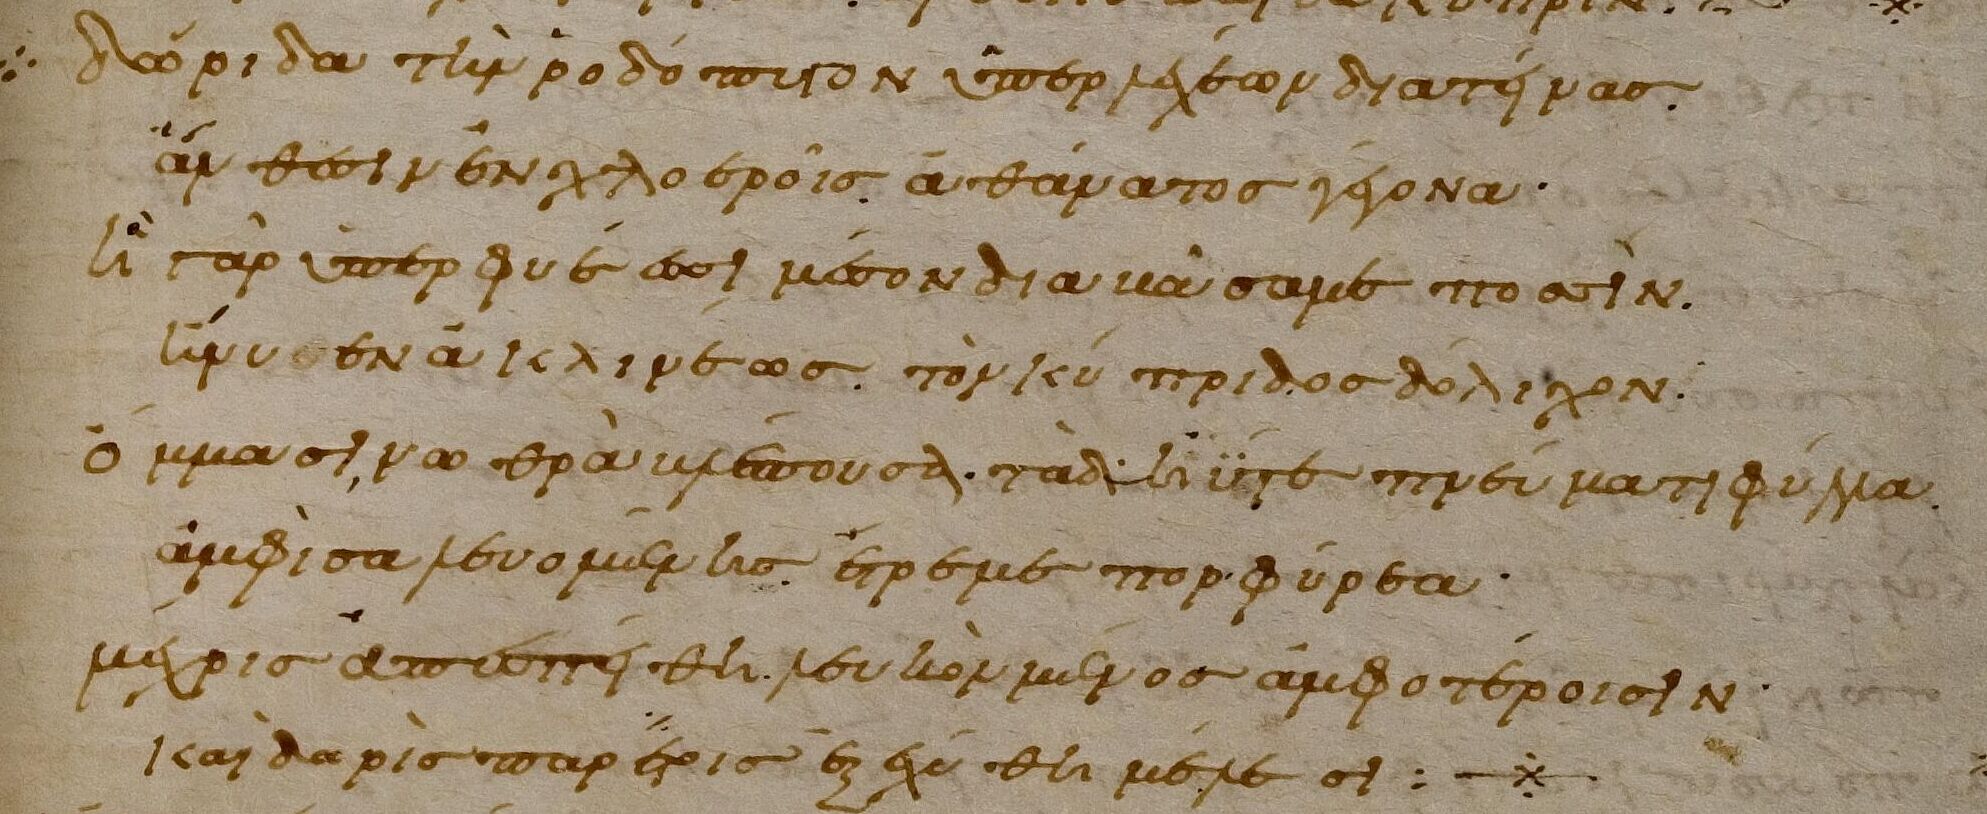 δωρίδα τὴν ῥοδόπυγον ὑπὲρ λεχέων διατείνας.
ἄνθεσιν ἐν χλοεροῖς. ἀθάνατος γέγονα·
ἡ γὰρ ὑπερφυέεσσι μέσον διαβᾶσά με ποσσὶν.
ἤνυσεν ἀκλινέως. τὸν κύπριδος δόλιχον.
ὄμμασι, νωθρὰ βλέπουσα. τὰ δ' ἠΰτε πνεύματι φύλλα.
ἀμφισαλευομένης. ἔτρεμε πορφύρεα·
μέχρις ἀπεσπείσθη. λευκὸν μένος ἀμφοτέροισιν·
καὶ δωρὶς παρέτοις ἐξεχύθη μέλεσι: